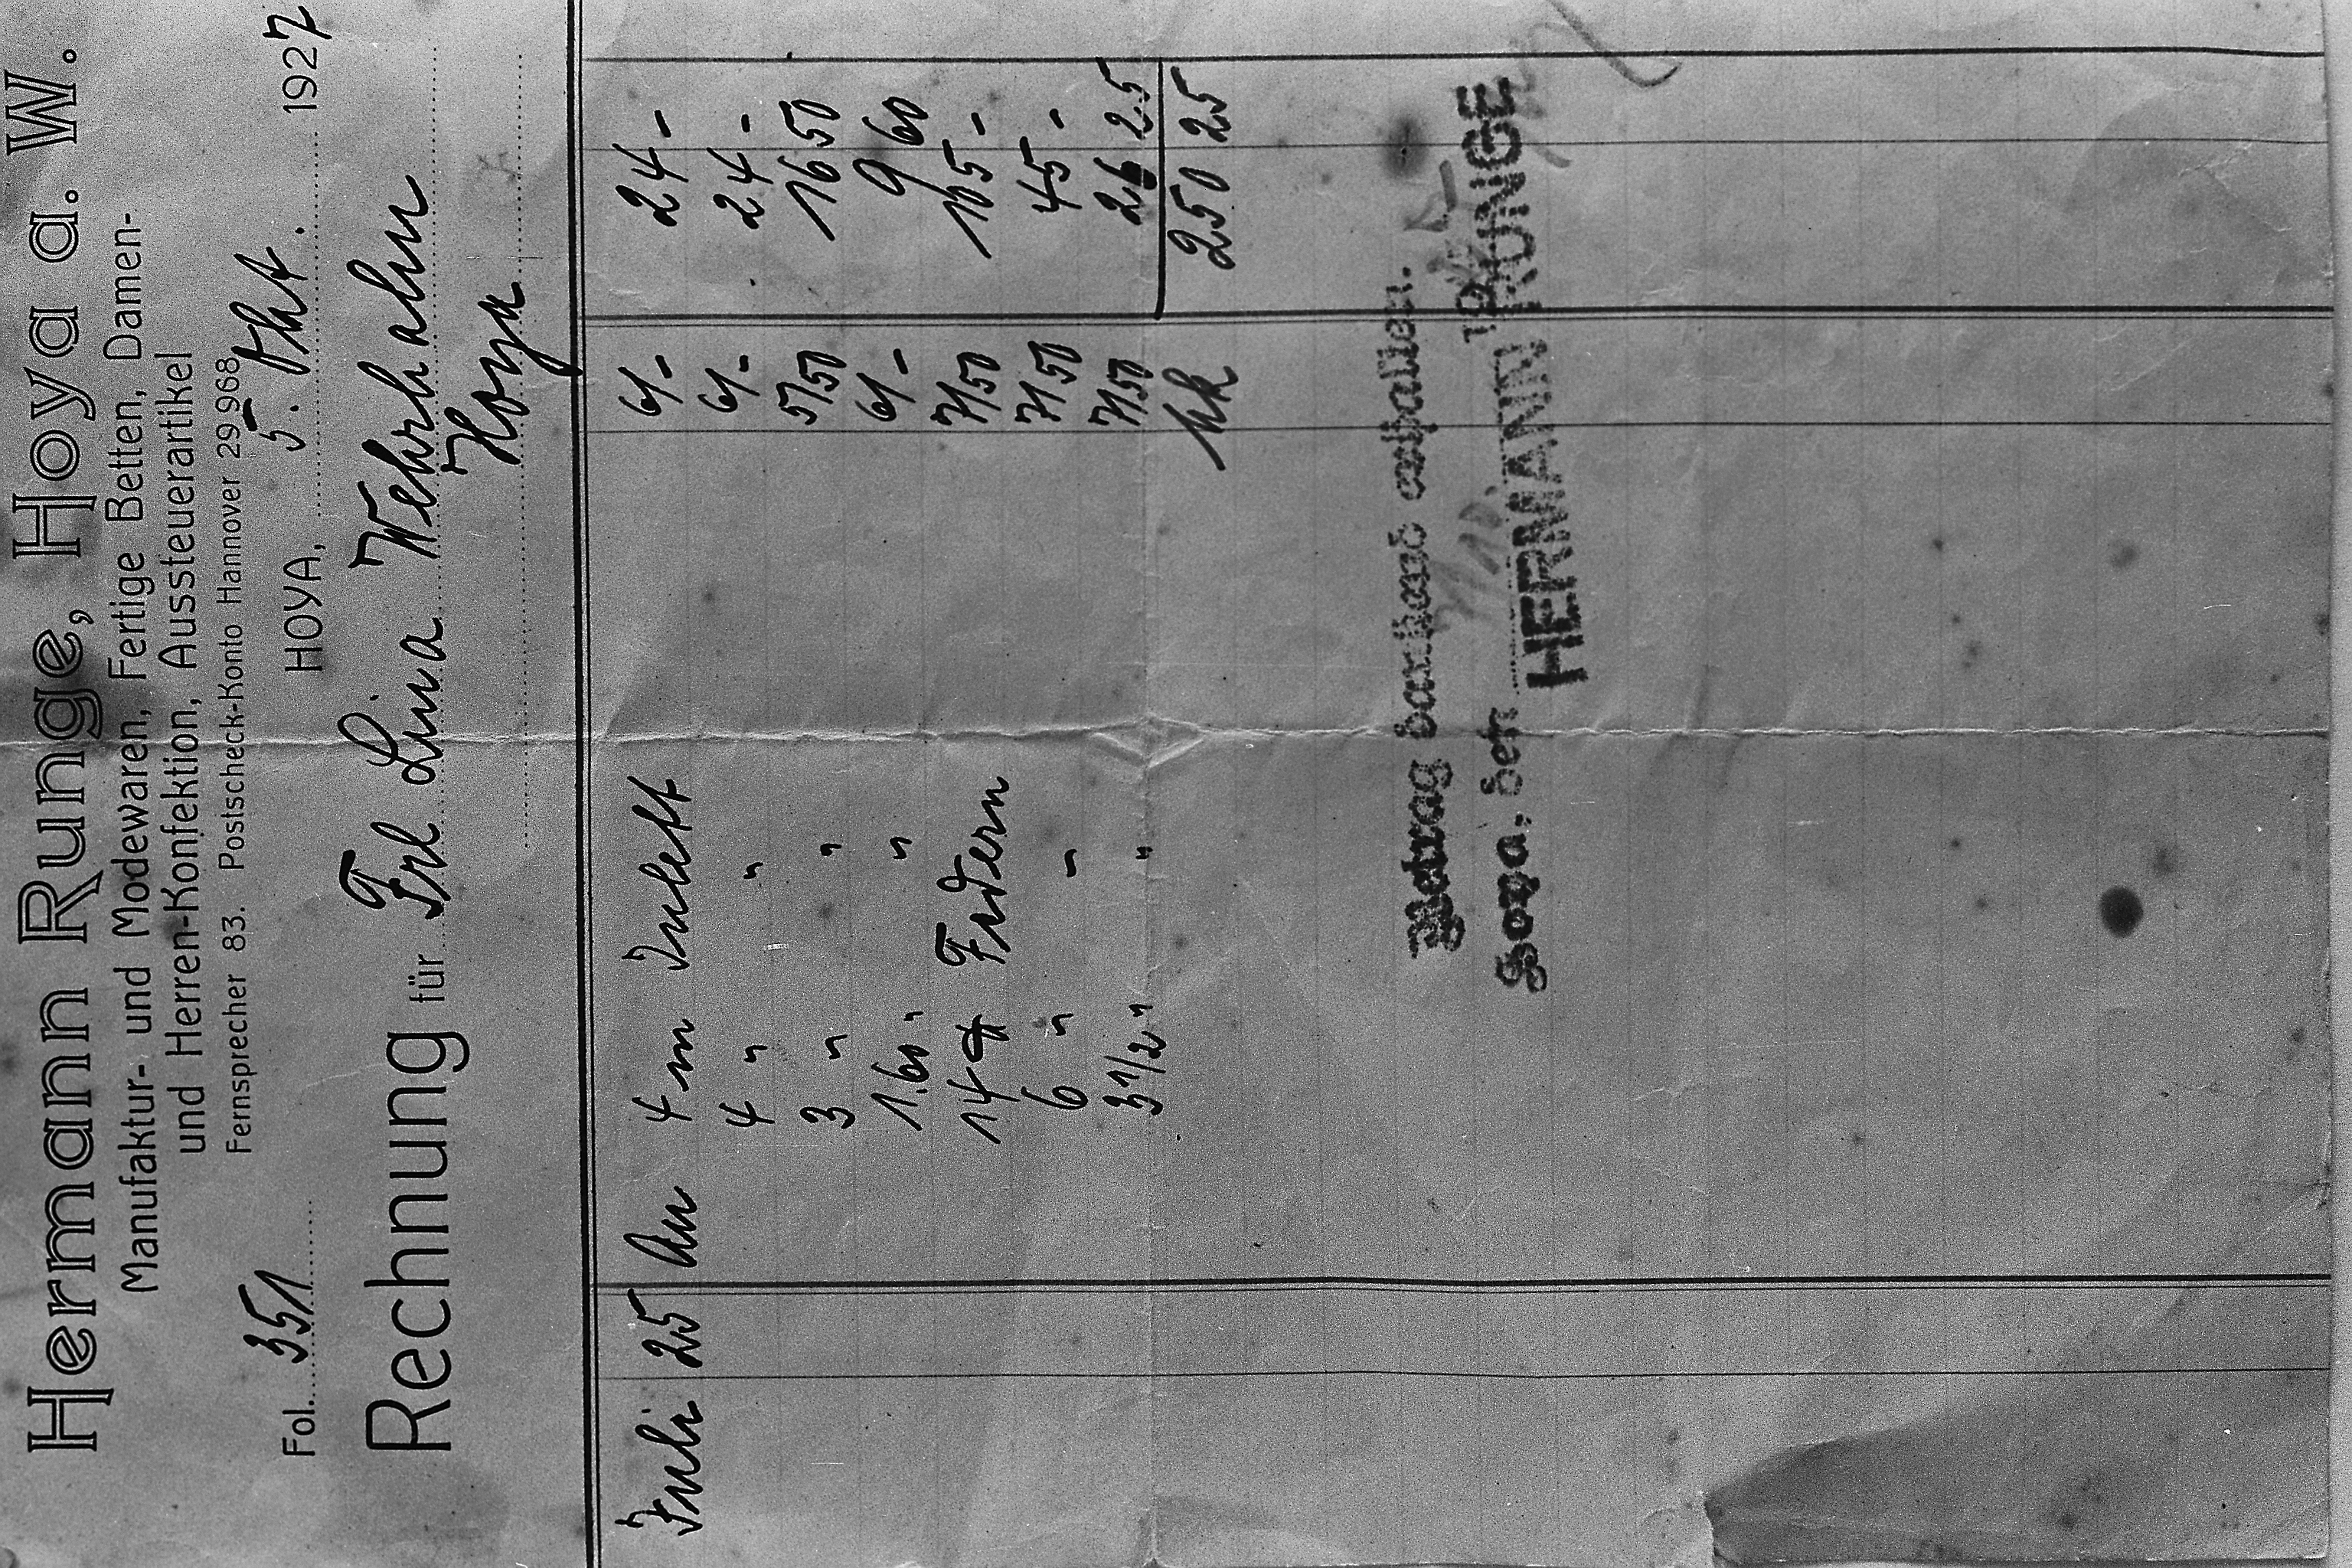 Hermann Runge, Hoya a. W.
Manufaktur- und Modewaren, Fertige Betten, Damen-
und Herren-Konfektion, Aussteuerartikel
Fernsprecher 83. Postscheck-Konto Hannover 29968
Fol. 351 HOYA, 5. Okt. 1927
Rechnung für Frl Lina Wehrhahn
Hoya
Juli 25 An 4 m Inlett 6/- 24 -
4 " " 6/- 24 -
3 " " 5/50 16 50
1.60 " " 6/- 9 60
14 ℔ Federn 7/50 105 -
6 " " 7/50 45 -
3 1/2 " " 7/50 26 25
Mk 250 25
Betrag dankend erhalten.
Hoya, den 19
HERMANN RUNGE